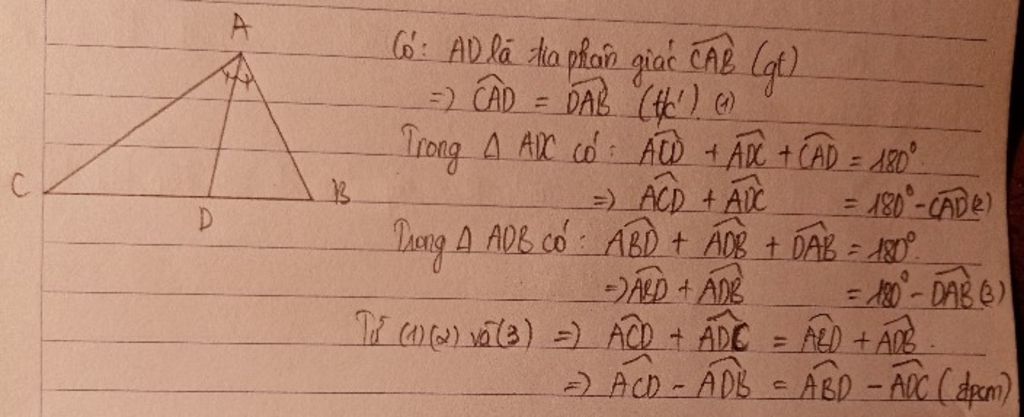 A
C
D
B
Có: AD là tia phân giác CAB (gt)
=> CAD = DAB (t/c) (1)
Trong Δ ADC có: ACD + ADC + CAD = 180°
=> ACD + ADC = 180° - CAD (2)
Trong Δ ADB có: ABD + ADB + DAB = 180°
=> ABD + ADB = 180° - DAB (3)
Từ (1) (2) và (3) => ACD + ADC = ABD + ADB.
=> ACD - ADB = ABD - ADC (đpcm)